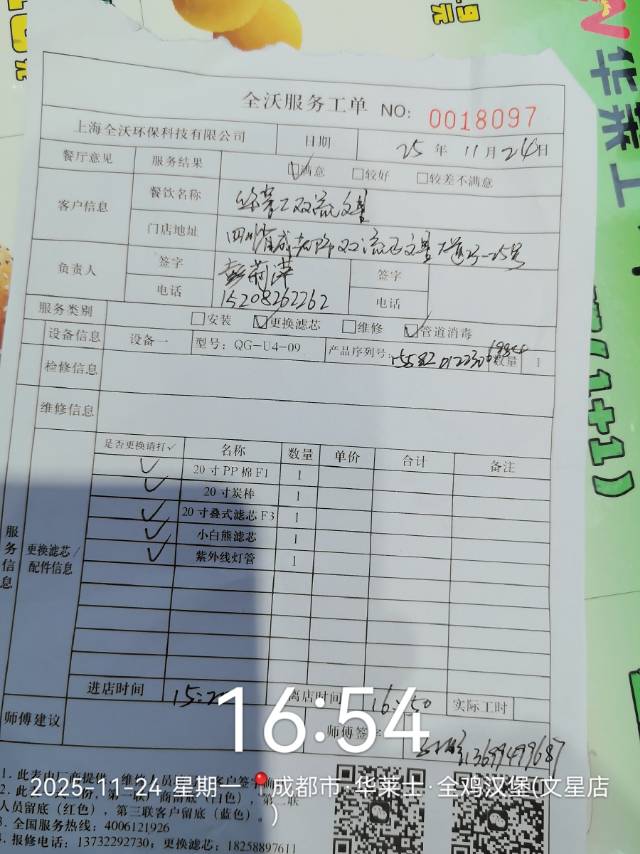 华莱士
(1+1)
元
全沃服务工单 NO: 0018097
上海全沃环保科技有限公司 日期 25 年 11 月 24 日
餐厅意见 服务结果 ☑满意 □较好 □较差不满意
客户信息 餐饮名称 华莱士双流文星
门店地址
负责人 签字 签字
电话 15208262262 电话
服务类别 □安装 ☑更换滤芯 □维修 ☑管道消毒
设备信息 设备一 型号: QG-U4-09 产品序列号: 数量 1
检修信息
维修信息
服务信息 更换滤芯/配件信息
是否更换请打✓ 名称 数量 单价 合计 备注
✓ 20寸PP棉F1 1
✓ 20寸炭棒 1
✓ 20寸叠式滤芯F3 1
✓ 小白熊滤芯 1
✓ 紫外线灯管 1
进店时间 离店时间 16:50 实际工时
师傅建议 师傅签字
16:54
2025-11-24 星期一 成都市·华莱士·全鸡汉堡(文星店
)
1. 此表由厂商提供
人员留底（红色），第三联客户留底（蓝色）。
3. 全国服务热线: 4006121926
4. 报修电话: 13732292730; 更换滤芯: 18258897611